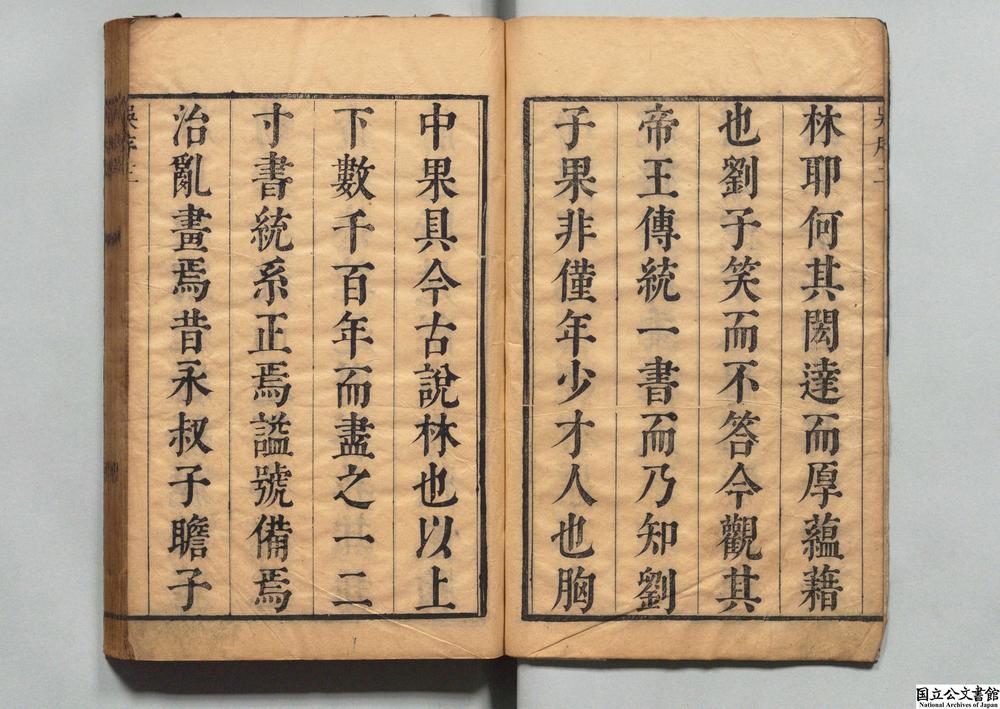 林耶何其閎達而厚蘊藉
也劉子笑而不答今觀其
帝王傳統一書而乃知劉
子果非僅年少才人也胸
中果具今古說林也以上
下數千百年而盡之一二
寸書統系正焉謚號備焉
治亂畫焉昔永叔子瞻子
国立公文書館
National Archives of Japan